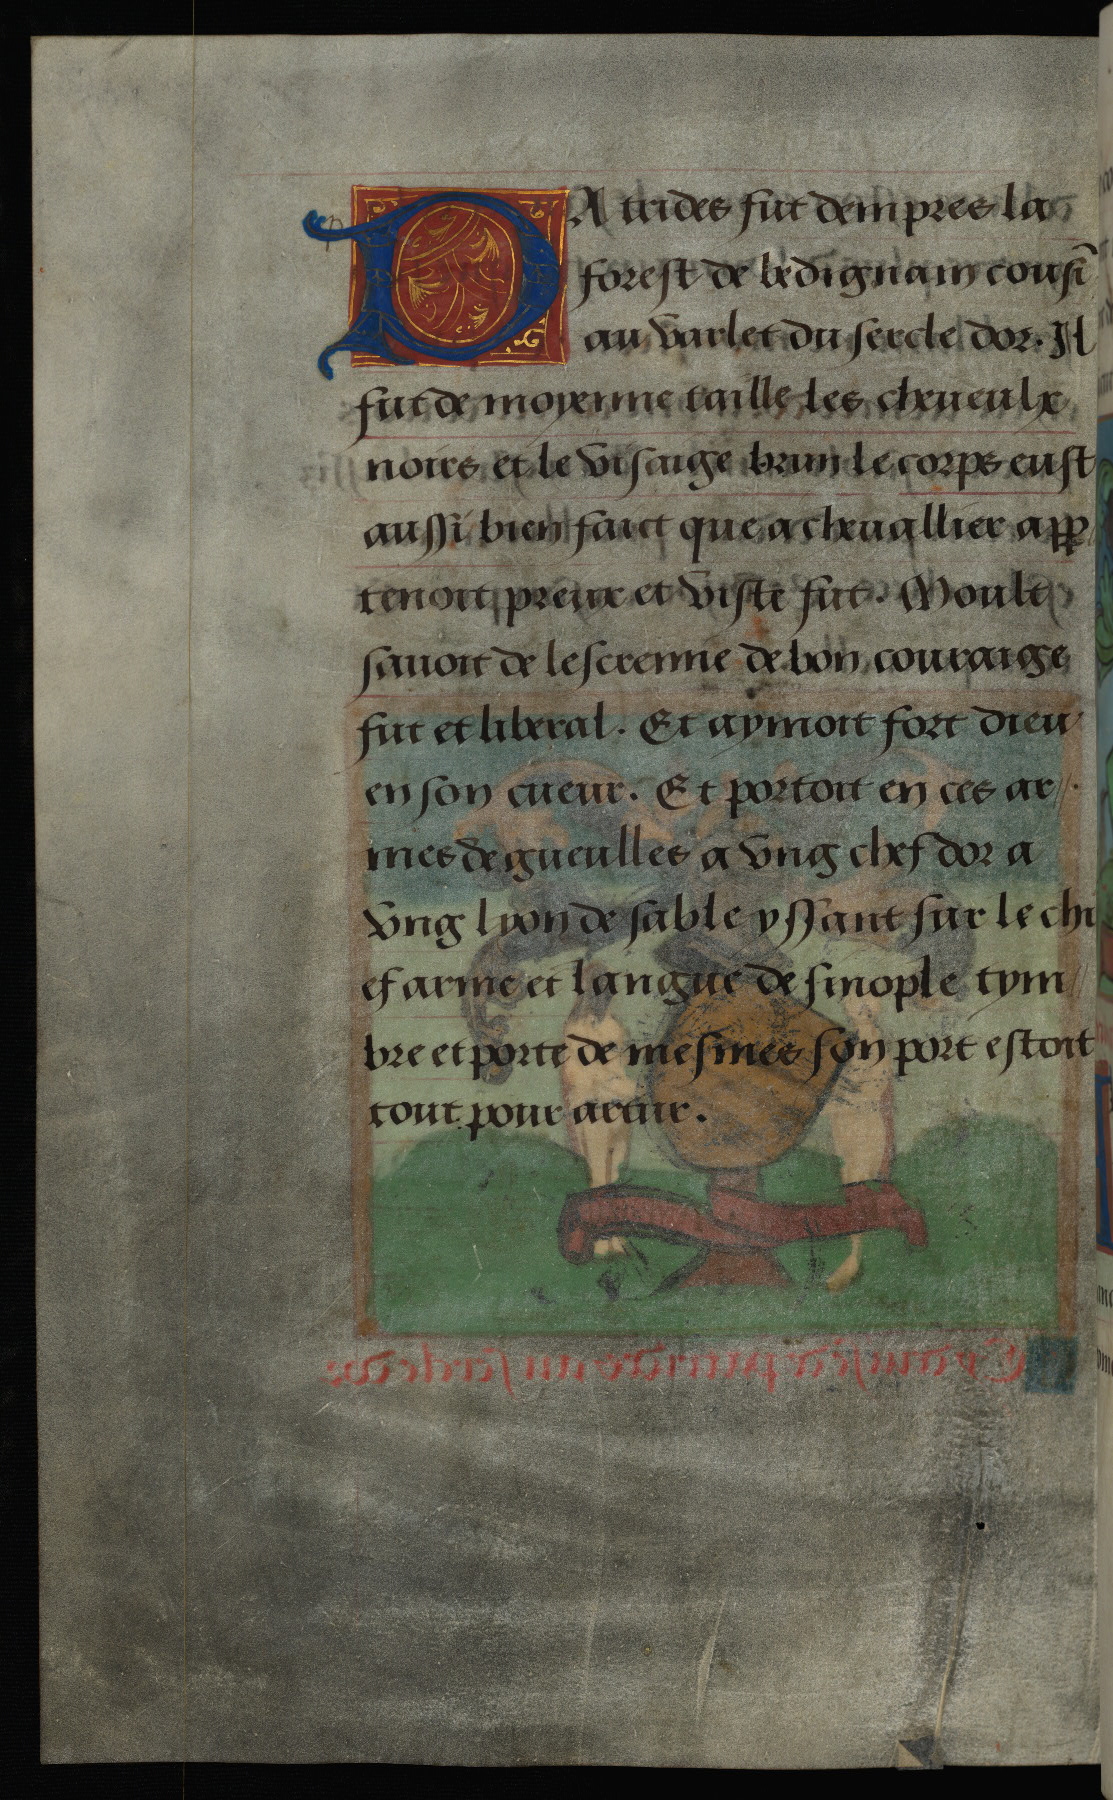 PA trides fut dempres la
forest de bedignam cousī
au varlet du sercle dor. Il
fut de moyenne taille les cheueulx
noirs et le visaige brun le corps eust
aussi bien faict que a cheuallier app
tenoit preux et viste fut. Moult
sauoit de lescremie de bon couraige
fut et liberal. Et aymoit fort dieu
en son cueur. Et portoit en ces ar//.
mes de gueulles a vng chef dor a
vng lyon de sable yssant sur le chi
ef arme et langue de sinople tym//
bre et porte de mesmes son port estoit
tout pour artur.